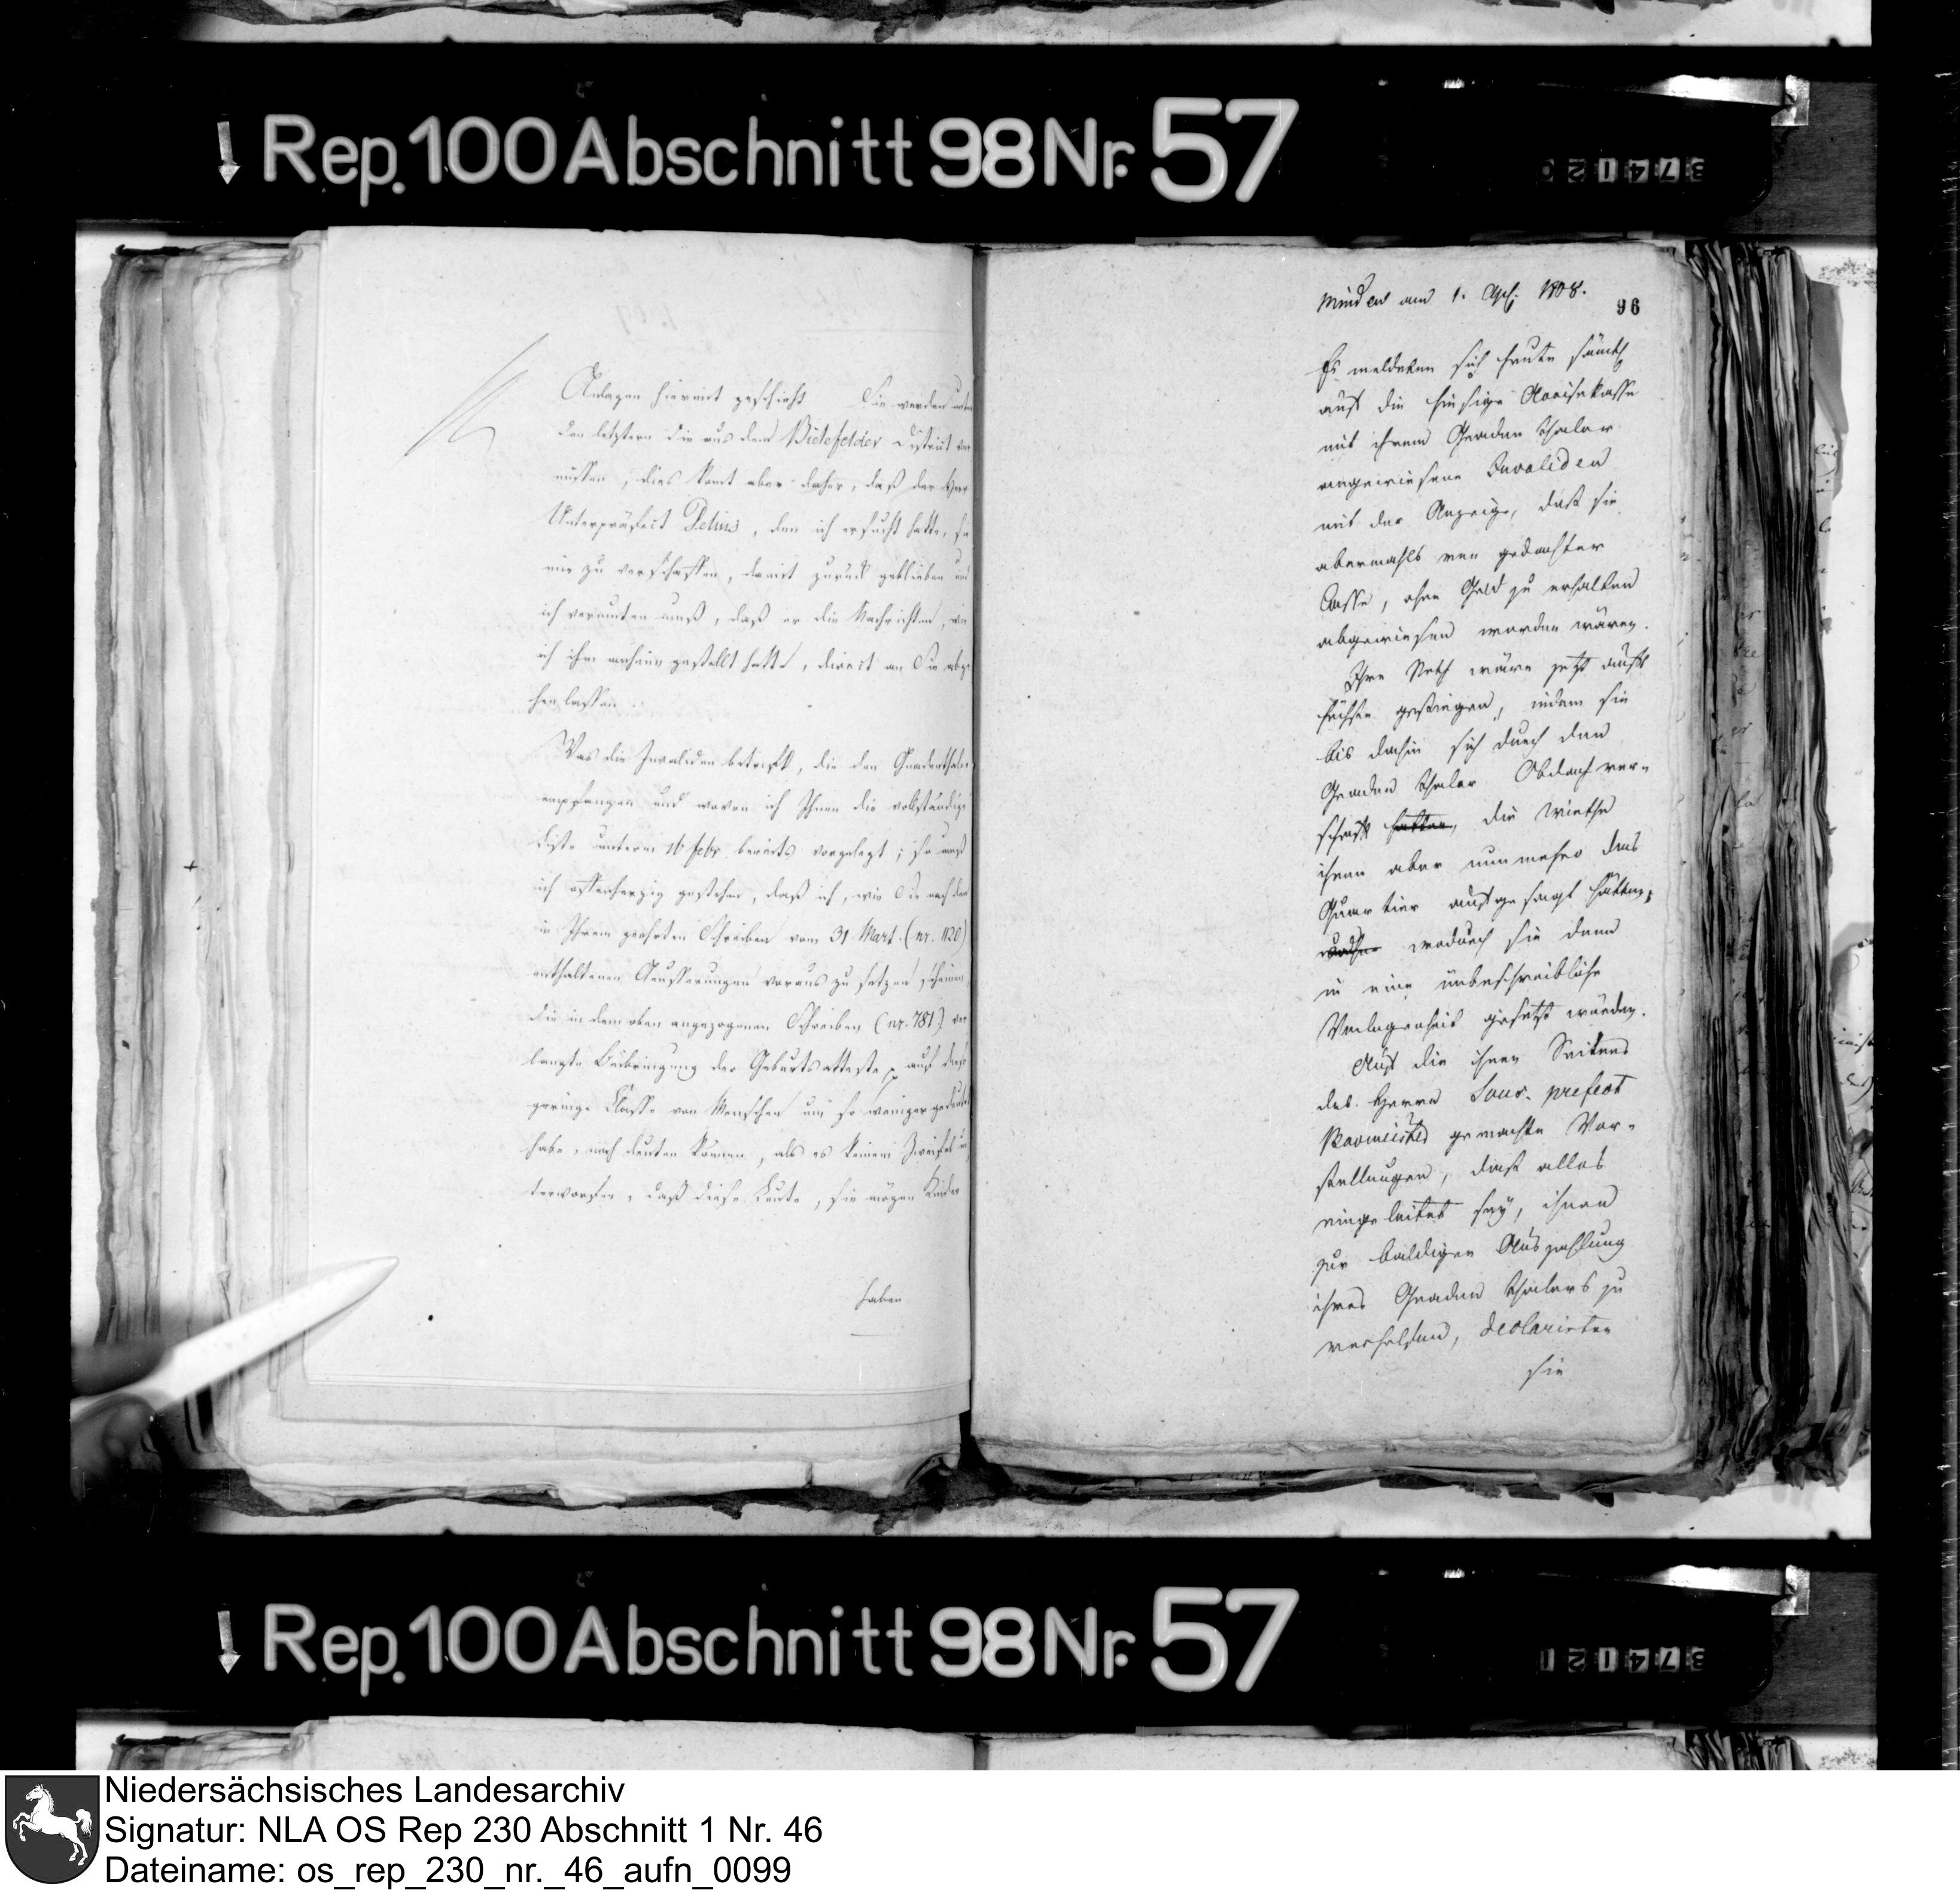 Rep. 100 Abschnitt 98 Nr. 57
374120
Anlagen hiermit geschieht Sie werden unter
den letztern die aus dem Bielefelder District ver
missen; dies komt aber daher, daß der Herr
Unterpräfect Delius, den ich ersucht hatte, sie
mir zu verschaffen, damit zurück geblieben und
ich vermuten muß, daß er die Nachrichten, wie
ich ihm anheim gestellt hatte, direct an Sie abge
hen lassen.
Was die Invaliden betrifft, die den Gnadenthaler
empfangen und wovon ich Ihnen die vollständige
Liste unterm 16 Febr. bereits vorgelegt; so muß
ich offenherzig gestehen, daß ich, wie Sie nach den
in Ihrem geehrten Schreiben vom 31 Mart. (nr. 1120)
enthaltenen Aeusserungen voraus zu setzen scheinen,
die in dem oben angezogenen Schreiben (nr. 781) ver
langte Beibringung der Geburtsatteste p auf diese
geringe Classe von Menschen um so weniger gedeutet
habe, noch deuten können, als es keinem Zweifel un
terworfen, daß diese Leute, sie mögen Kinder
haben
Minden am 1. Apr. 1808.
96
Es meldeten sich heute sämtl.
auf die hiesige Accisekasse
mit ihrem Gnaden thaler
angewiesene Invaliden
mit der Anzeige, daß sie
abermahls von gedachter
Casse, ohne Geld zu erhalten
abgewiesen worden wären.
Ihre Noth wäre jetzt aufs
höchste gestiegen, indem sie
bis dahin sich durch den
Gnaden thaler Obdach ver-
schaft hatten, die Wirthe
ihnen aber nunmehro das
Quartier aufgesagt hätten,
wodurch sie denn
in eine unbeschreibliche
Verlegenheit gesetzt würden.
Auf die ihnen Seitens
des Herrn Sous-prefect
gemachte Vor-
stellungen, daß alles
eingeleitet sey, ihnen
zur baldigen Auszahlung
ihres Gnaden thalers zu
verhelfen, declarirten
sie
Rep. 100 Abschnitt 98 Nr. 57
374121
Niedersächsisches Landesarchiv
Signatur: NLA OS Rep 230 Abschnitt 1 Nr. 46
Dateiname: os_rep_230_nr._46_aufn_0099